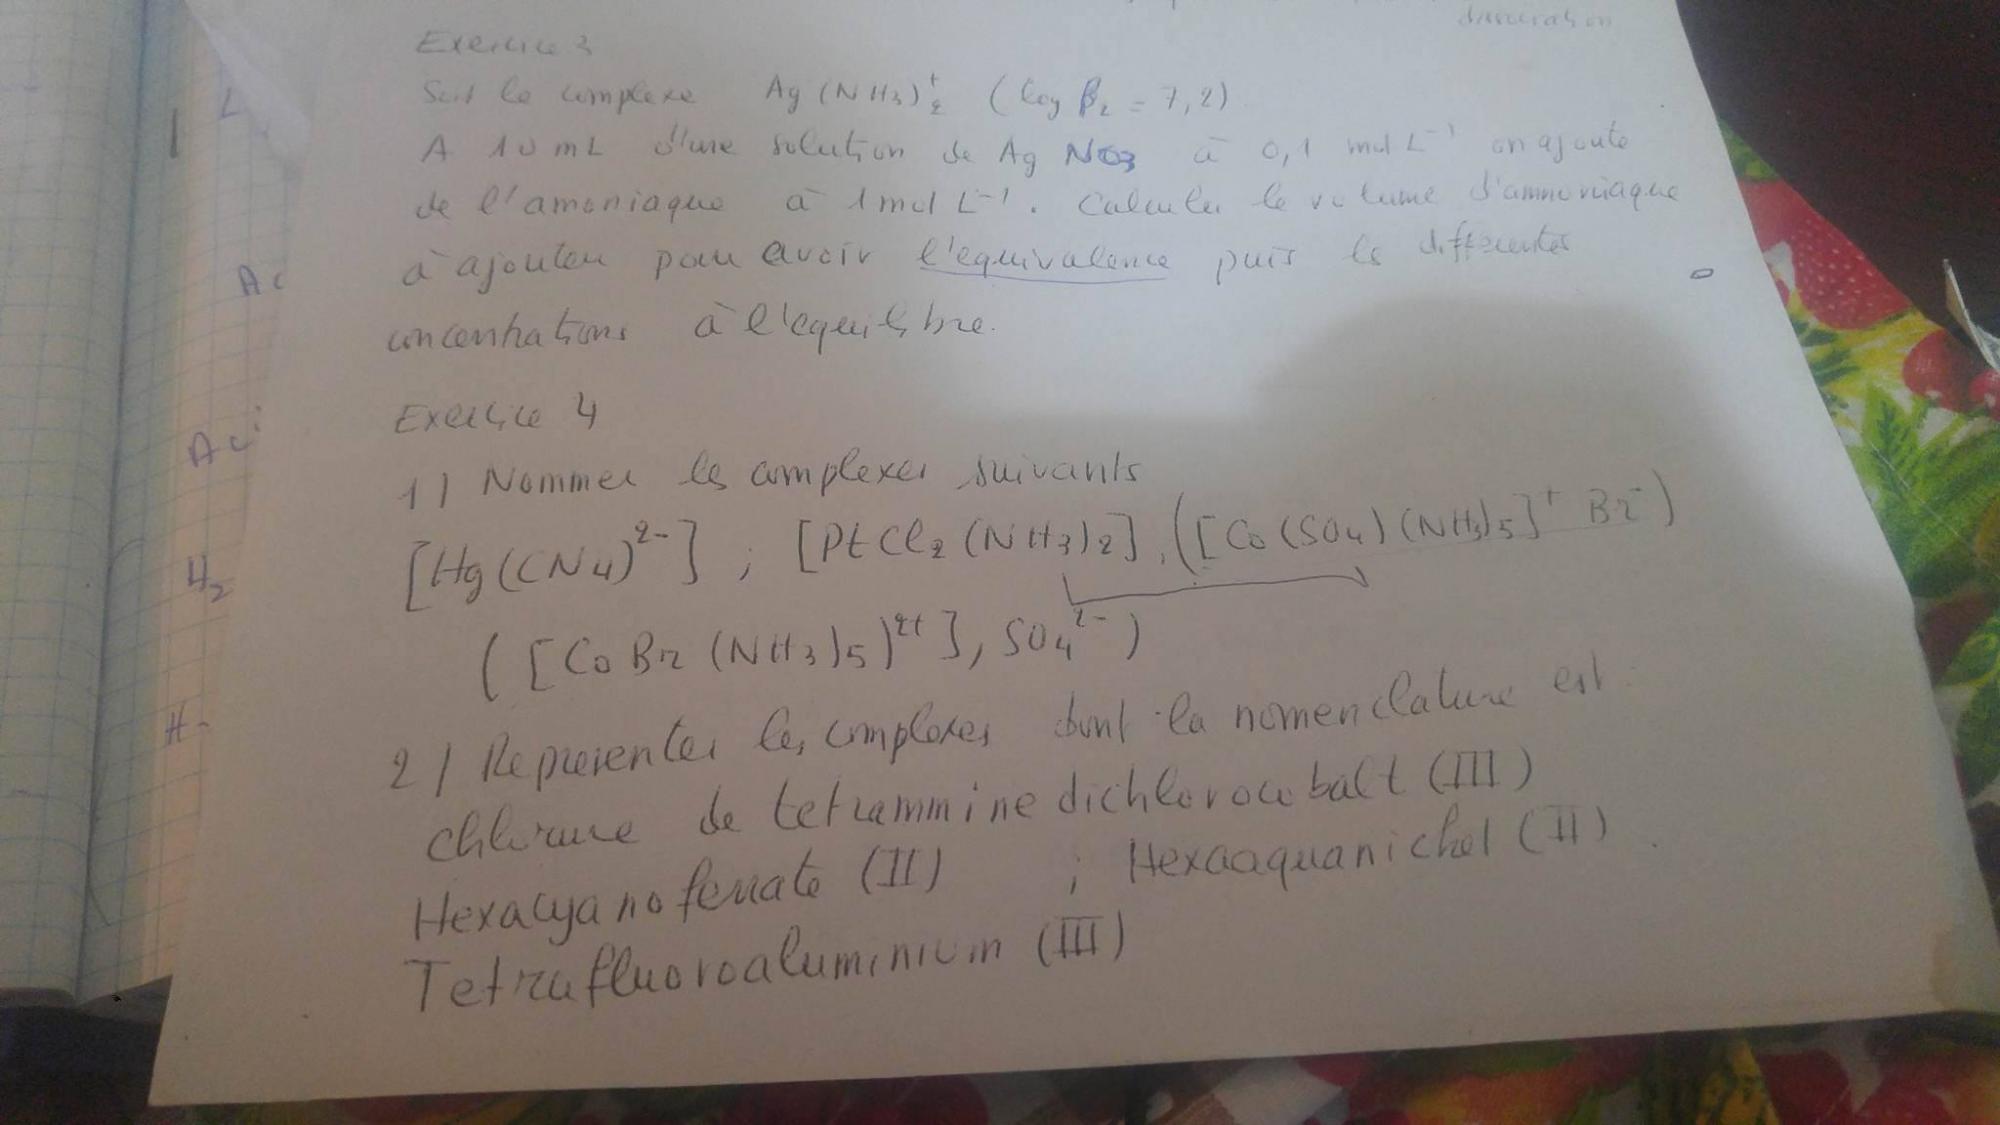 Exercice 3
Soit le complexe Ag(NH3)2+ (log β2 = 7,2)
A 10 mL d'une solution de AgNO3 à 0,1 mol L-1 on ajoute
de l'amoniaque à 1 mol L-1. Calculer le volume d'ammoniaque
à ajouter pour avoir l'equivalence puis les differentes
concentrations à l'equilibre.
Exercice 4
1) Nommer les complexes suivants
[Hg(CN4)2-] ; [PtCl2(NH3)2], ([Co(SO4)(NH3)5]+ Br-)
([CoBr(NH3)5)2+], SO42-)
2) Representer les complexes dont la nomenclature est :
chlorure de tetrammine dichlorocobalt (III)
Hexacyanoferrate (II) ; Hexaaquanickel (II)
Tetrafluoroaluminium (III)
L
Ac
Ac
H2
H